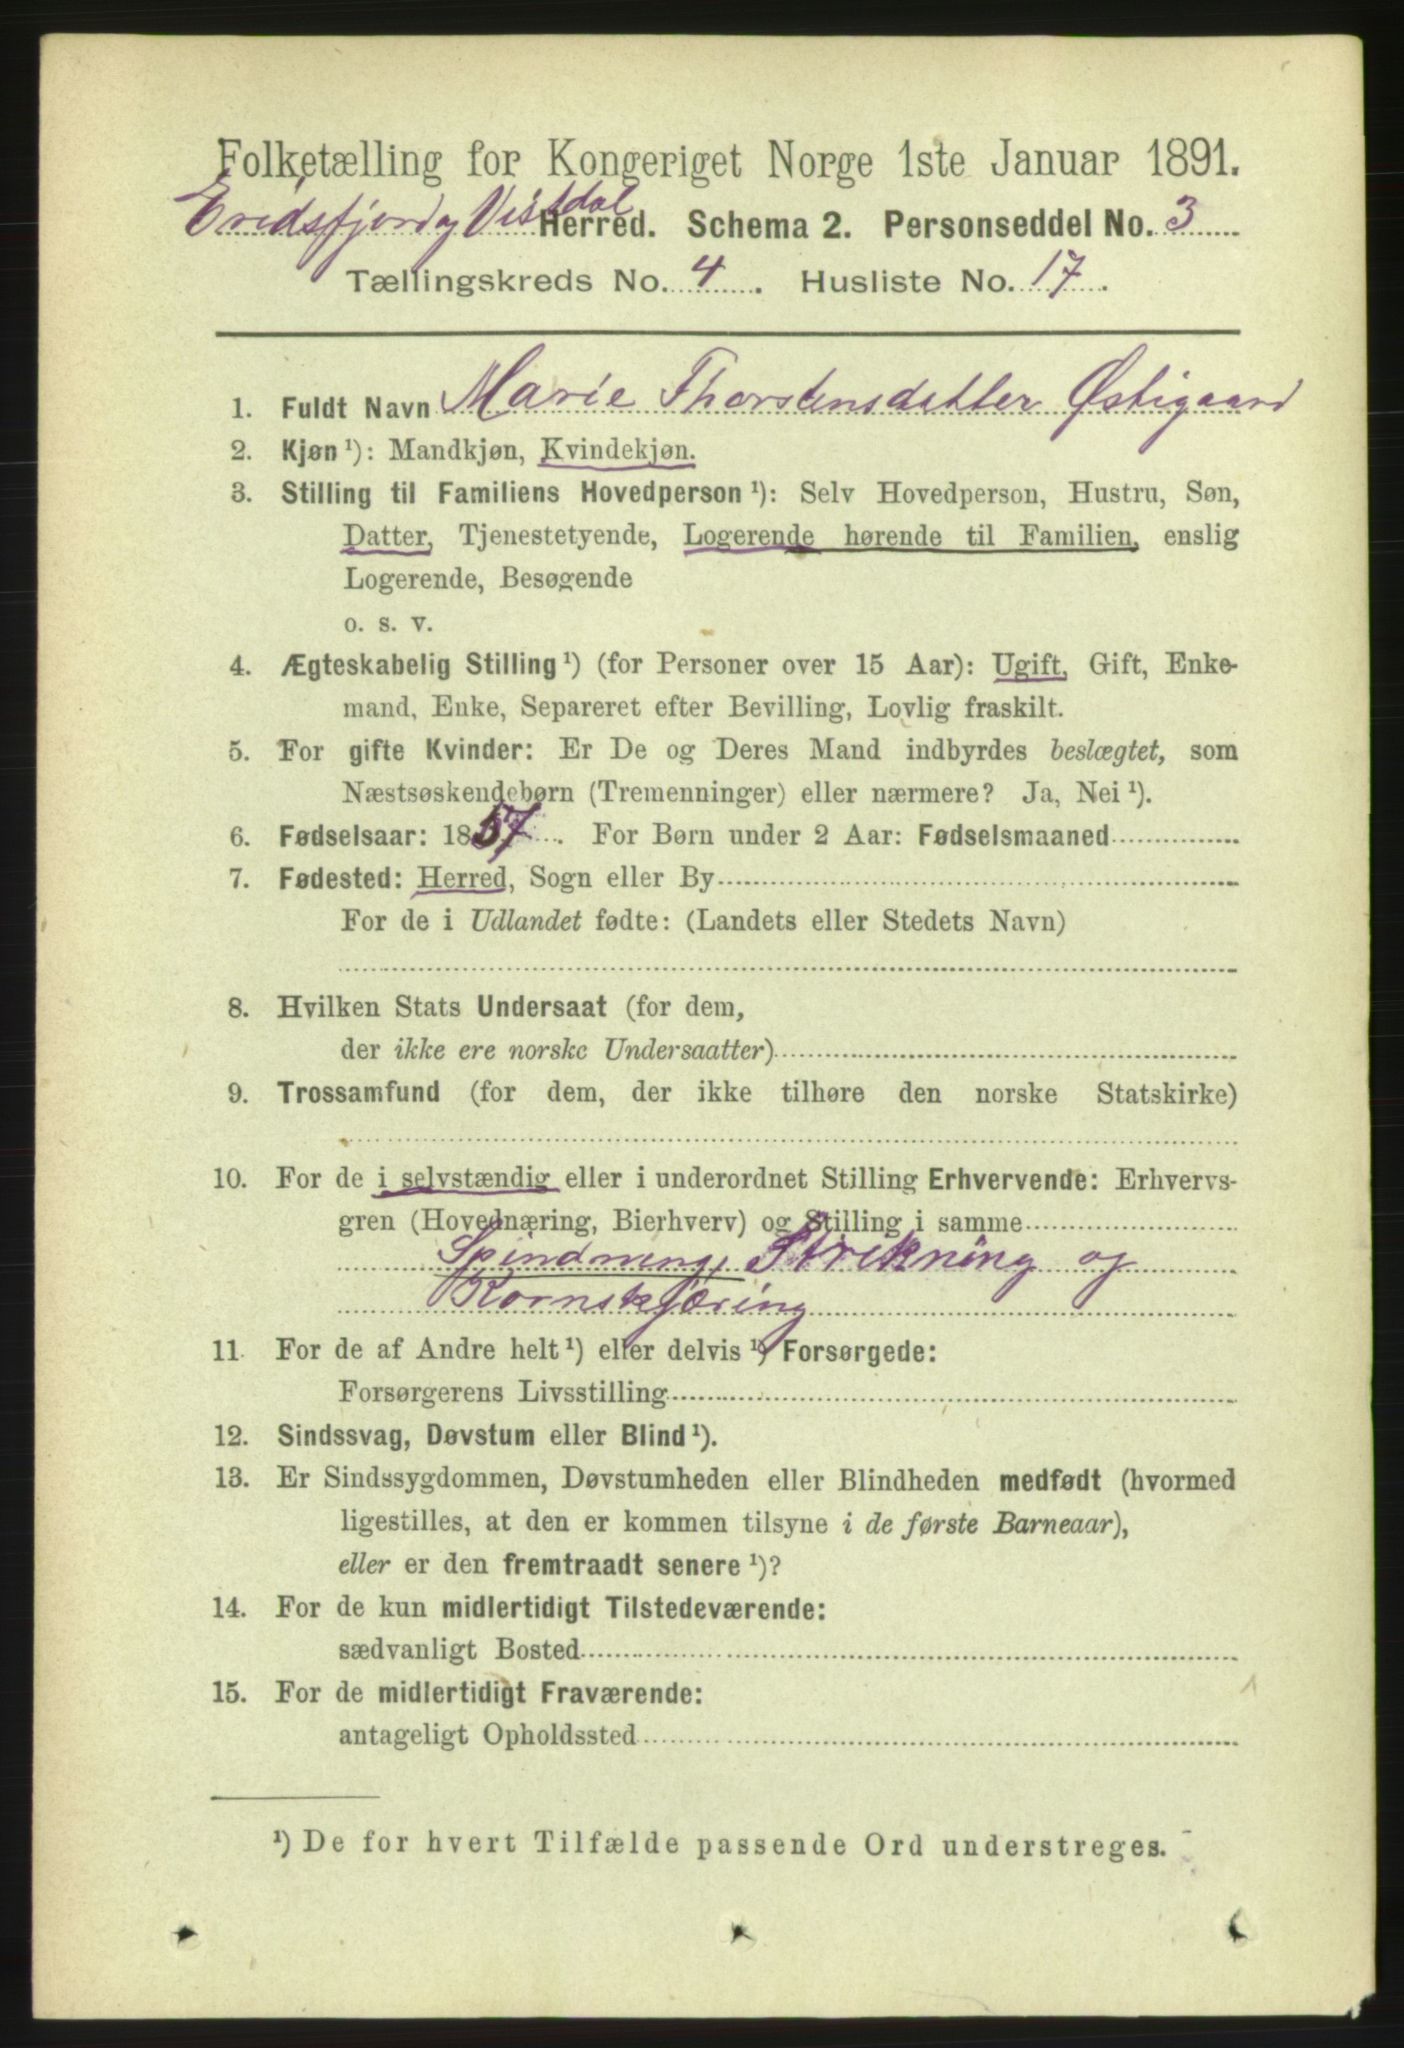 Folketælling for Kongeriget Norge 1ste Januar 1891.
Eridsfjord og Vistdal Herred. Schema 2. Personseddel No. 3
Tællingskreds No. 4. Husliste No. 17.
1. Fuldt Navn Marie Thorstensdatter Østigaard
2. Kjøn ¹): Mandkjøn, Kvindekjøn.
3. Stilling til Familiens Hovedperson ¹): Selv Hovedperson, Hustru, Søn,
Datter, Tjenestetyende, Logerende hørende til Familien, enslig
Logerende, Besøgende
o. s. v.
4. Ægteskabelig Stilling ¹) (for Personer over 15 Aar): Ugift, Gift, Enke-
mand, Enke, Separeret efter Bevilling, Lovlig fraskilt.
5. For gifte Kvinder: Er De og Deres Mand indbyrdes beslægtet, som
Næstsøskendebørn (Tremenninger) eller nærmere? Ja, Nei ¹).
6. Fødselsaar: 1857. For Børn under 2 Aar: Fødselsmaaned
7. Fødested: Herred, Sogn eller By
For de i Udlandet fødte: (Landets eller Stedets Navn)
8. Hvilken Stats Undersaat (for dem,
der ikke ere norske Undersaatter)
9. Trossamfund (for dem, der ikke tilhøre den norske Statskirke)
10. For de i selvstændig eller i underordnet Stilling Erhvervende: Erhvervs-
gren (Hovednæring, Bierhverv) og Stilling i samme
Spindning, Strikning og
Kornskjæring
11. For de af Andre helt ¹) eller delvis ¹) Forsørgede:
Forsørgerens Livsstilling
12. Sindssvag, Døvstum eller Blind ¹).
13. Er Sindssygdommen, Døvstumheden eller Blindheden medfødt (hvormed
ligestilles, at den er kommen tilsyne i de første Barneaar),
eller er den fremtraadt senere ¹)?
14. For de kun midlertidigt Tilstedeværende:
sædvanligt Bosted
15. For de midlertidigt Fraværende:
antageligt Opholdssted
¹) De for hvert Tilfælde passende Ord understreges.